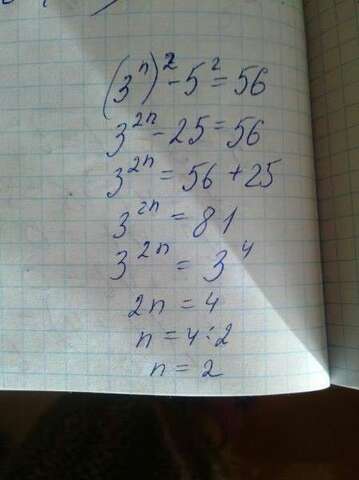 (3ⁿ)² - 5² = 56
3²ⁿ - 25 = 56
3²ⁿ = 56 + 25
3²ⁿ = 81
3²ⁿ = 3⁴
2n = 4
n = 4:2
n = 2